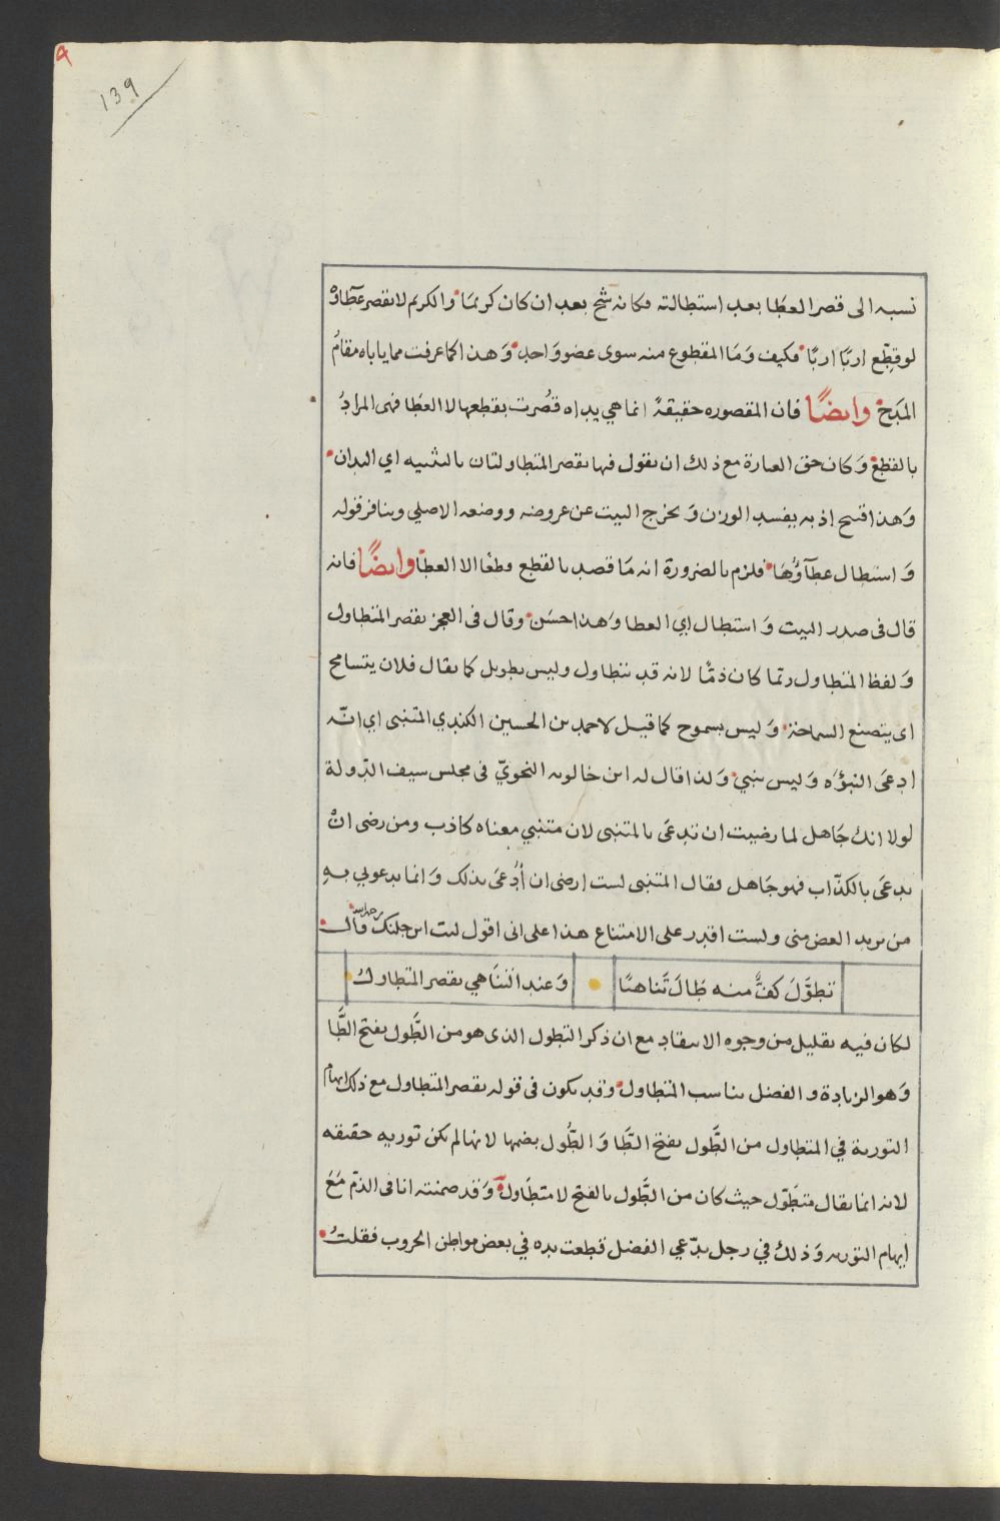 139
نسبه الى قصر العطا بعد استطالته فكانه شح بعد ان كان كريمًا والكريم لا يقصر عطاؤه
لو قطع اربًا اربًا فكيف وَمَا المقطوع منه سوى عضو وَاحد وَهذا كما عرفت مما ياباه مقام
المدَح وايضًا فان المقصوره حقيقة انما هي يداه قصُرت بقطعها لا العطا فهى المرادُ
بالقطع وَكان حق العبارة مع ذلك ان يقول فيها يقصر المتطاولتان بالتثنيه اي اليدان
وَهذا اقبح اذ به يفسد الوزن وَيخرج البيت عن عروضه ووضعه الاصلي وينافر قوله
وَاستطال عطآؤُهَا فلزم بالضرورة انه مَا قصد بالقطع وطعًا الا العطا وايضًا فانه
قال فى صدر البيت وَاستطال اي العطا وَهذا احسَن وقال فى العجز يقصر المتطاول
وَلفظ المتطاول ربما كان ذمًّا لانه قد يتطاول وليس بطويل كما يقال فلان يتسامح
اى يتصنع السماحة وَليس بسموح كما قيل لاحمد بن الحسين الكندي المتنبى اي انّه
ادعَى النبوَّه وَليس بنبي وَلذا قال له ابن خالويه النحويّ فى مجلس سيف الدّولة
لولا انك جَاهل لما رضيت ان تدعَى بالمتنبى لان متنبي معناه كاذب ومن رضى انْ
يدعَى بالكذّاب فهو جَاهل فقال المتنبى لست ارضى ان اُدْعَى بذلك وَانما يدعوني بهِ
من يريد الغض منى ولست اقدر على الامتناع هذا على انى اقول ليت ابن جلنك رحمه الله قال
تطوَّلَ كفٌّ منه طَالَ تَناهيًا وَعند التنَاهي يقصر المتطاولُ
لكان فيه تقليل من وجوه الانتقاد مع ان ذكر التطول الذى هو من الطَّول بفتح الطَّا
وَهو الزيادة و الفضل يناسب المتطاول وقد يكون فى قوله يقصر المتطاول مع ذلك ايهام
التورية في المتطاول من الطَّول بفتح الطَّا وَالطُّول بضمها لانها لم يكن توريه حقيقه
لانه انما يقال متطَوّل حيث كان من الطَّول بالفتح لا متطَاول وَقد ضمنته انا فى الذمّ مَعَ
ايهام التوريه وَذلك في رجل يدّعي الفضل قطعت يده في بعض مواطن الحروب فقلتُ